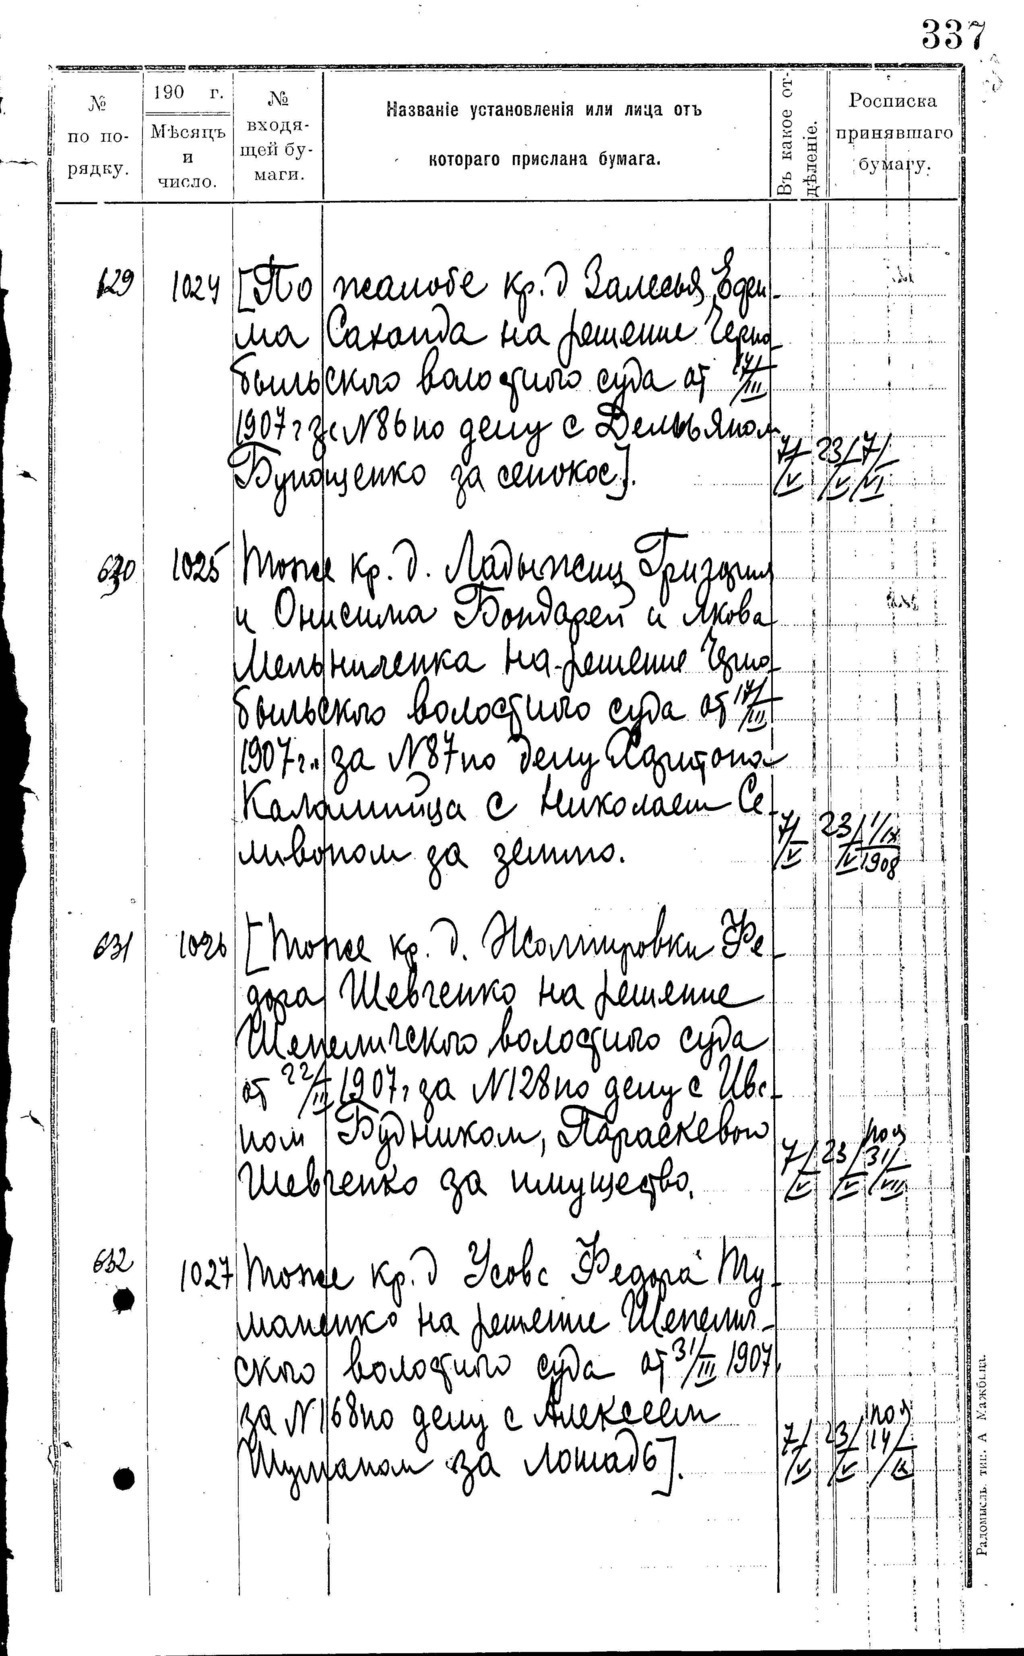 337
№ по порядку.
190 г.
Мѣсяцъ и число.
№ входящей бумаги.
Названіе установленія или лица отъ
котораго прислана бумага.
Въ какое отдѣленіе.
Росписка принявшаго бумагу.
629 1024 [По жалобе кр. д Залесья Ефи-
ма на решение Черно
быльскго волостного суда от 17/III
1907 г за №86 по делу с Демьяном
за сенокос]. 7/V 23/V 7/VI
630 1025 Тоже кр. д. Ладыжич Григория
и Онисима Бондарей и Якова
Мельниченка на решение Черно-
быльскго волостного суда от 17/III
1907 г. за №87 по делу Харитона
с Николаем Се-
ливоном за землю. 7/V 23/V 1/IX 1908
631 1026 [Тоже кр. д. Жолмировки Фе-
дора Шевченко на решение
Шепеличского волостного суда
от 22/III 1907 г за №128 по делу с Ива-
ном Будником, Параскевою
Шевченко за имущество. 7/V 23/V 31/VII
632 1027 Тоже кр. д Усовс Федора Ту-
маненко на решение Шепелич-
скго волостного суда от 31/III 1907
за №168 по делу с Алексеем
Шуманом за лошадь]. 7/V 23/V 14/IX
Радомысль, тип. А Мажбица.